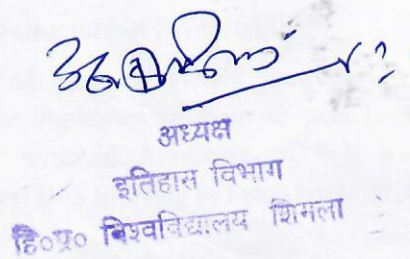 अध्यक्ष
इतिहास विभाग
हि०प्र० विश्वविद्यालय शिमला